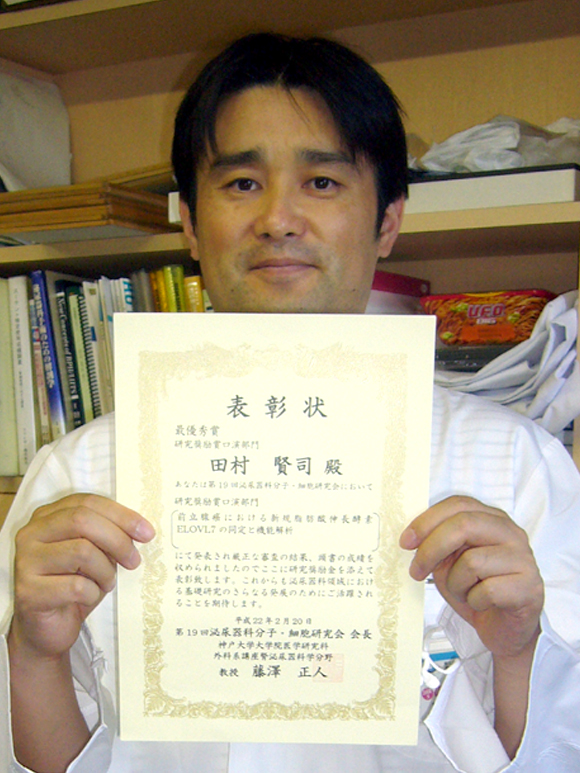 表彰状
最優秀賞
研究奨励賞口演部門
田村 賢司 殿
あなたは第19回泌尿器科分子・細胞研究会において
研究奨励賞口演部門
前立腺癌における新規脂肪酸伸長酵素
ELOVL7の同定と機能解析
にて発表され厳正な審査の結果、頭書の成績を
収められましたのでここに研究奨励金を添えて
表彰致します。これからも泌尿器科領域におけ
る基礎研究のさらなる発展のためにご活躍され
ることを期待します。
平成22年2月20日
第19回泌尿器科分子・細胞研究会 会長
神戸大学大学院医学研究科
外科系講座腎泌尿器科学分野
教授 藤澤 正人
UFO